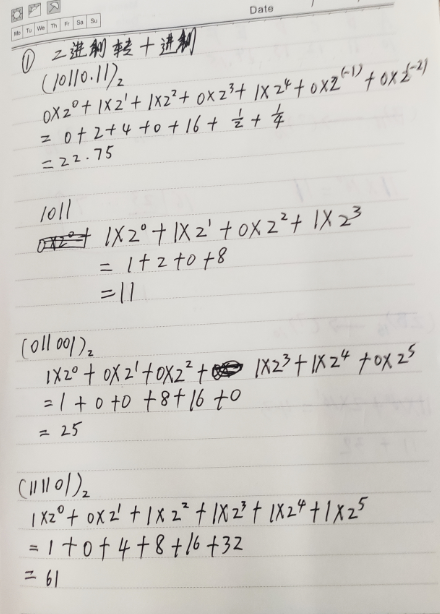 Date
Mo Tu We Th Fr Sa Su
① 二进制转十进制
(10110.11)₂
0×2⁰+1×2¹+1×2²+0×2³+1×2⁴+0×2⁽⁻¹⁾+0×2⁽⁻²⁾
= 0+2+4+0+16+ 1/2 + 1/4
= 22.75
1011
1×2⁰+1×2¹+0×2²+1×2³
= 1+2+0+8
= 11
(011001)₂
1×2⁰+0×2¹+0×2²+ 1×2³+1×2⁴+0×2⁵
= 1+0+0+8+16+0
= 25
(111101)₂
1×2⁰+0×2¹+1×2²+1×2³+1×2⁴+1×2⁵
= 1+0+4+8+16+32
= 61